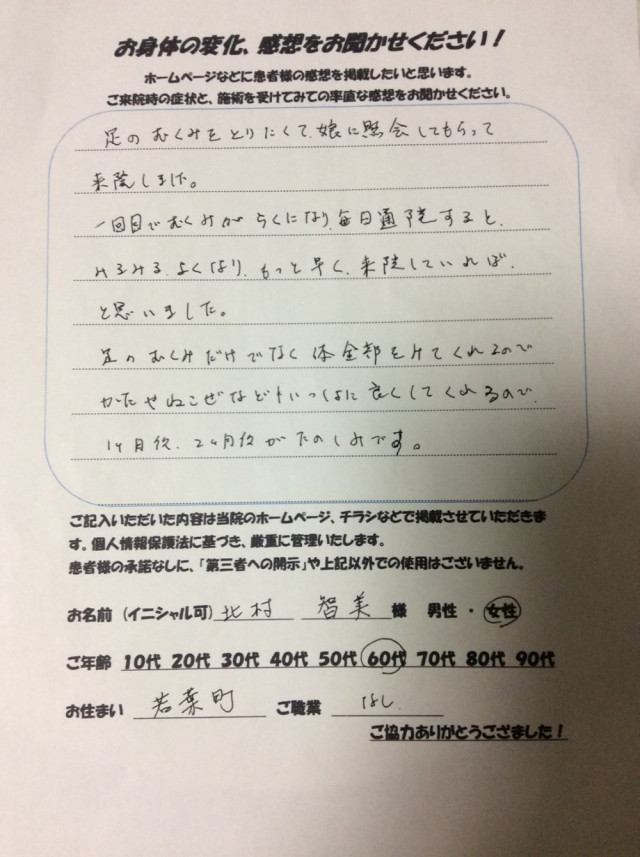 お身体の変化、感想をお聞かせください！
ホームページなどに患者様の感想を掲載したいと思います。
ご来院時の症状と、施術を受けてみての率直な感想をお聞かせください。
足のむくみをとりたくて、娘に照会してもらって
来院しました。
一回目でむくみがらくになり、毎日通院すると、
みるみる、よくなり、もっと早く、来院していれば、
と思いました。
足のむくみだけでなく体全部をみてくれるので
かたやねこぜなどもいっしょに良くしてくれるので、
1ヶ月後、2ヶ月後がたのしみです。
ご記入いただいた内容は当院のホームページ、チラシなどで掲載させていただきま
す。個人情報保護法に基づき、厳重に管理いたします。
患者様の承諾なしに、「第三者への開示」や上記以外での使用はございません。
お名前（イニシャル可） 北村 智美 様 男性 ・ 女性
ご年齢 10代 20代 30代 40代 50代 60代 70代 80代 90代
お住まい 若葉町 ご職業 なし
ご協力ありがとうござました！